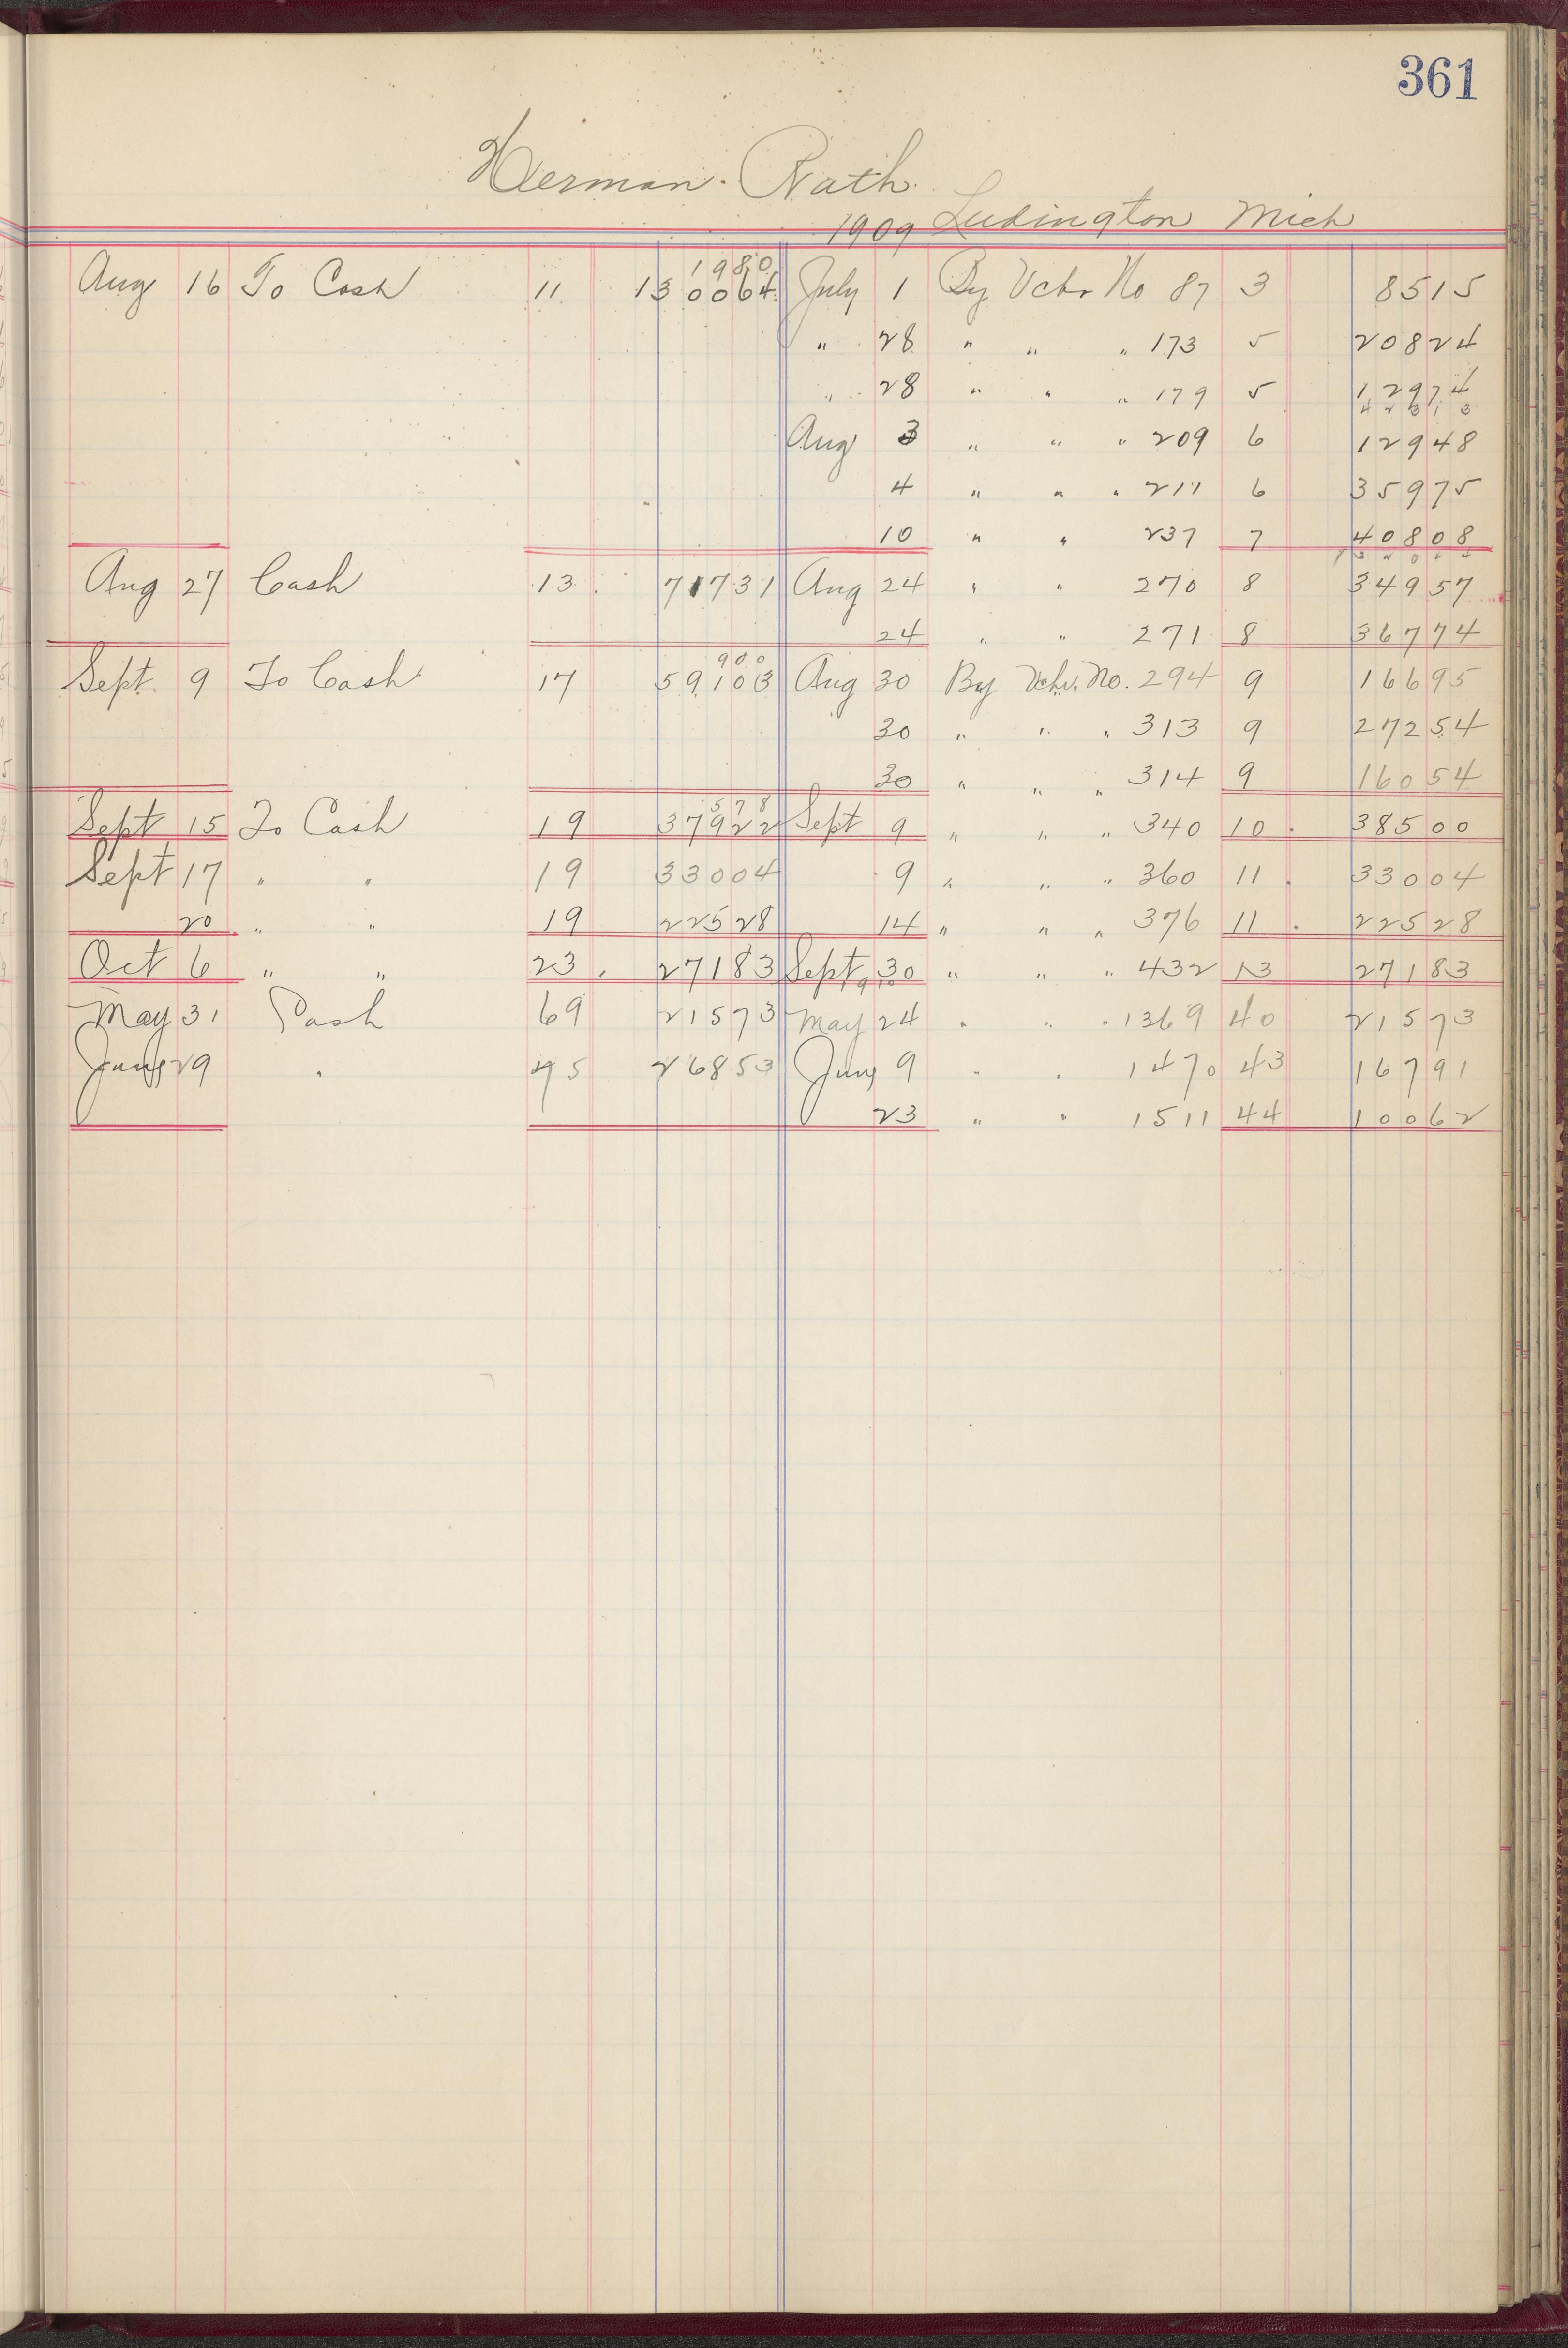 361
Herman Rath.
1909 Ludington Mich
1980
Aug 16 To Cash 11 130064 July 1 By Vchr No 87 3 8515
" 28 " " " 173 5 20824
" 28 " " " 179 5 12974
42313
Aug 3 " " " 209 6 12948
4 " " " 211 6 35975
10 " " 237 7 40808
Aug 27 Cash 13 71731 Aug 24 " " 270 8 34957
24 " " 271 8 36774
900
Sept. 9 To Cash 17 59103 Aug 30 By Vchr. No. 294 9 16695
30 " " " 313 9 27254
30 " " " 314 9 16054
578
Sept 15 To Cash 19 37922 Sept 9 " " " 340 10 38500
Sept 17 " " 19 33004 9 " " " 360 11 33004
20 " " 19 22528 14 " " " 376 11 22528
Oct 6 " " 23 27183 Sept 30 " " " 432 13 27183
May 31 Cash 69 21573 May 24 " " " 1369 40 21573
June 29 " 75 26853 June 9 " " 1470 43 16791
23 " " 1511 44 10062